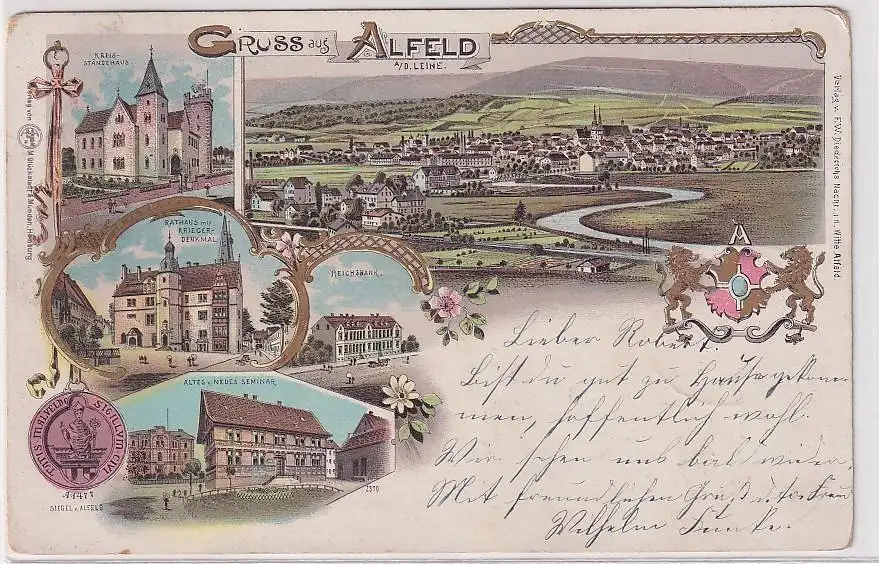 GRUSS aus ALFELD
A/D. LEINE.
KREIS-
STÄNDEHAUS.
RATHAUS mit
KRIEGER-
DENKMAL.
REICHSBANK.
ALTES u. NEUES SEMINAR.
2370
SIGILLVM CIVI
A.1477
SIEGEL v. ALFELD
Verlag v. F. W. Diederichs Nachf. u. Witte Alfeld
Lieber Robert.
Bist du gut zu Hause gekom-
men, hoffentlich wohl.
Wir sehen uns bald wieder,
Mit freundlichen Gruß
Wilhelm Funke.